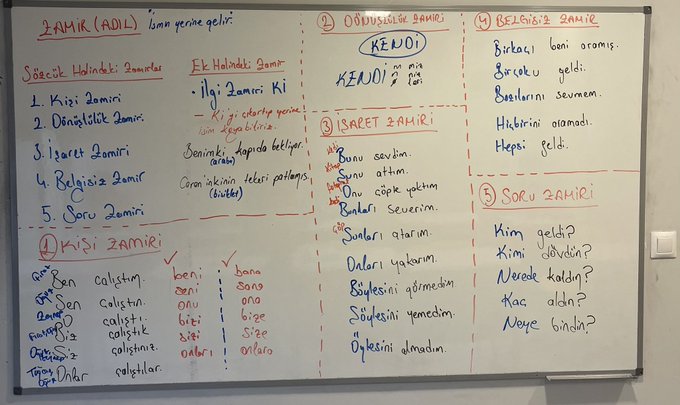 ZAMİR (ADIL) İsmin yerine gelir.
Sözcük Halindeki Zamirler
1. Kişi Zamiri
2. Dönüşlülük Zamiri
3. İşaret Zamiri
4. Belgisiz Zamir
5. Soru Zamiri
Ek Halindeki Zamir
• İlgi Zamiri Kİ
– Ki'yi çıkartıp yerine
isim koyabiliriz.
Benimki kapıda bekliyor.
(araba)
Caron'inkinin tekeri patlamış.
(bisiklet)
① KİŞİ ZAMİRİ
Ben çalıştım. beni bana
Sen çalıştın. seni sana
O çalıştı. onu ona
Biz çalıştık bizi bize
Siz çalıştınız. sizi size
Onlar çalıştılar. onları onlara
② DÖNÜŞLÜLÜK ZAMİRİ
KENDİ
KENDİ m miz
n niz
leri
③ İŞARET ZAMİRİ
Bunu sevdim.
Kitap
Şunu attım.
Onu çöpte yaktım
Bunları severim.
Çöp
Şunları atarım.
Onları yakarım.
Böylesini görmedim
Şöylesini yemedim.
Öylesini almadım.
④ BELGİSİZ ZAMİR
Birkaçı beni aramış.
Birçoğu geldi.
Bazılarını sevmem.
Hiçbirini aramadı.
Hepsi geldi.
⑤ SORU ZAMİRİ
Kim geldi?
Kimi dövdün?
Nerede kaldın?
Kaç aldın?
Neye bindin?